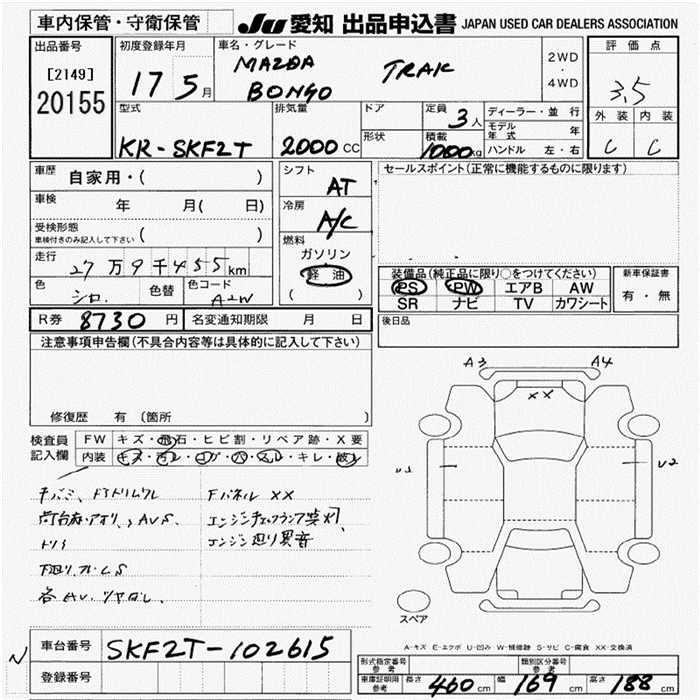 車内保管・守衛保管 JU 愛知 出品申込書 JAPAN USED CAR DEALERS ASSOCIATION
出品番号 初度登録年月 車名・グレード 評価点
[2149] 17 5月 MAZDA TRAK 2WD
20155 BONGO ・4WD 3.5
型式 排気量 ドア 定員 3人 ディーラー・並行 外装 内装
形状 積載 モデル年式 年
KR-SKF2T 2000CC 1000kg ハンドル 左・右 C C
車歴 自家用・( ) シフト AT セールスポイント(正常に機能するものに限ります)
車検 年 月( 日) 冷房 A/C
受検形態 ( )
車検付きのみ記入して下さい
走行 27万9千455km 燃料 ガソリン 軽油 ( )
装備品(純正品に限り○をつけてください) 新車保証書
色 シロ 色替 色コード A2W PS PW エアB AW 有・無
SR ナビ TV カワシート
R券 8730円 名変通知期限 月 日 後日品
注意事項申告欄(不具合内容等は具体的に記入して下さい)
A3 A4
XX
修復歴 有 (箇所
検査員記入欄 FW キズ・飛石・ヒビ割・リペア跡・X要
内装 キズ・ヨゴレ・コゲ・穴・スレ・キレ・破レ
U1 U2
Fパネル XX
エンジンチェックランプ点灯
エンジン廻り異音
下廻り
スペア
A-キズ E-エクボ U-凹み W-補修跡 S-サビ C-腐食 XX-交換済
N 車台番号 SKF2T-102615
登録番号
形式指定番号 参考 類別区分番号 参考
車庫証明用 参考 長さ 460cm 幅 169cm 高さ 188cm